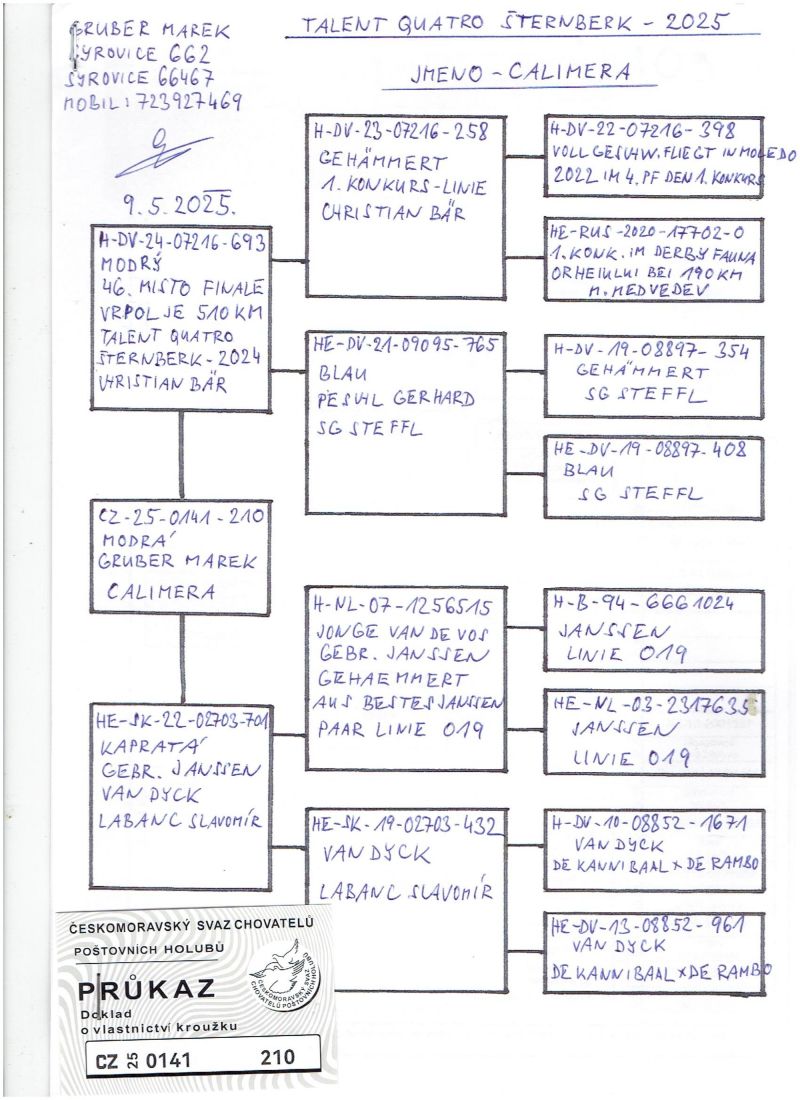 GRUBER MAREK
SYROVICE 662
SYROVICE 66467
MOBIL: 723927469
9.5.2025.
TALENT QUATRO ŠTERNBERK - 2025
JMENO - CALIMERA
H-DV-24-07216-693
MODRÝ
46. MISTO FINALE
VRPOLJE 510 KM
TALENT QUATRO
ŠTERNBERK - 2024
CHRISTIAN BÄR
CZ-25-0141-210
MODRA´
GRUBER MAREK
CALIMERA
HE-SK-22-02703-701
KAPRATA´
GEBR. JANSSEN
VAN DYCK
LABANC SLAVOMÍR
H-DV-23-07216-258
GEHÄMMERT
1. KONKURS-LINIE
CHRISTIAN BÄR
HE-DV-21-09095-765
BLAU
PESCHL GERHARD
SG STEFFL
H-NL-07-1256515
JONGE VAN DE VOS
GEBR. JANSSEN
GEHAEMMERT
AUS BESTES JANSSEN
PAAR LINIE 019
HE-SK-19-02703-432
VAN DYCK
LABANC SLAVOMÍR
H-DV-22-07216-398
VOLL GESCHW. FLIEGT IN MOLEDO
2022 IM 4. PF DEN 1. KONKURS
HE-RUS-2020-17702-0
1. KONK. IM DERBY FAUNA
ORHEIULUI BEI 190 KM
M. MEDVEDEV
H-DV-19-08897-354
GEHÄMMERT
SG STEFFL
HE-DV-19-08897-408
BLAU
SG STEFFL
H-B-94-6661024
JANSSEN
LINIE 019
HE-NL-03-2317635
JANSSEN
LINIE 019
H-DV-10-08852-1671
VAN DYCK
DE KANNIBAAL x DE RAMBO
HE-DV-13-08852-961
VAN DYCK
DE KANNIBAAL x DE RAMBO
ČESKOMORAVSKÝ SVAZ CHOVATELŮ
POŠTOVNÍCH HOLUBŮ
PRŮKAZ
Doklad
o vlastnictví kroužku
ČESKOMORAVSKÝ SVAZ
CHOVATELŮ POŠTOVNÍCH HOLUBŮ
CZ 25 0141 210